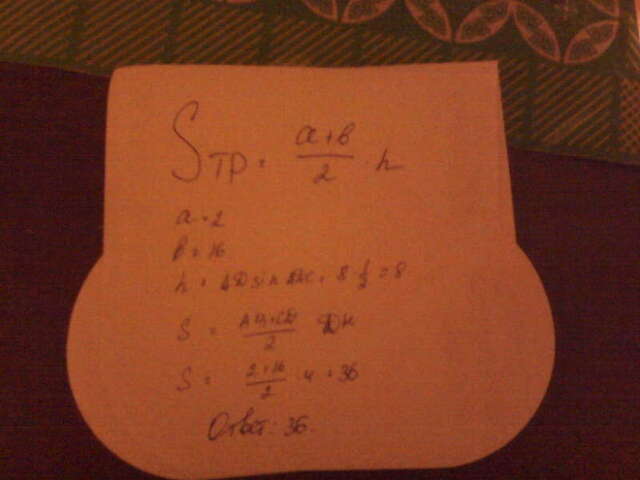 Sтр = a+b/2 · h
a = 2
b = 16
h = AD sin ADC = 8 · 1/2 = 8
S = AB+CD/2 · DH
S = 2+16/2 · 4 = 36
Ответ: 36.